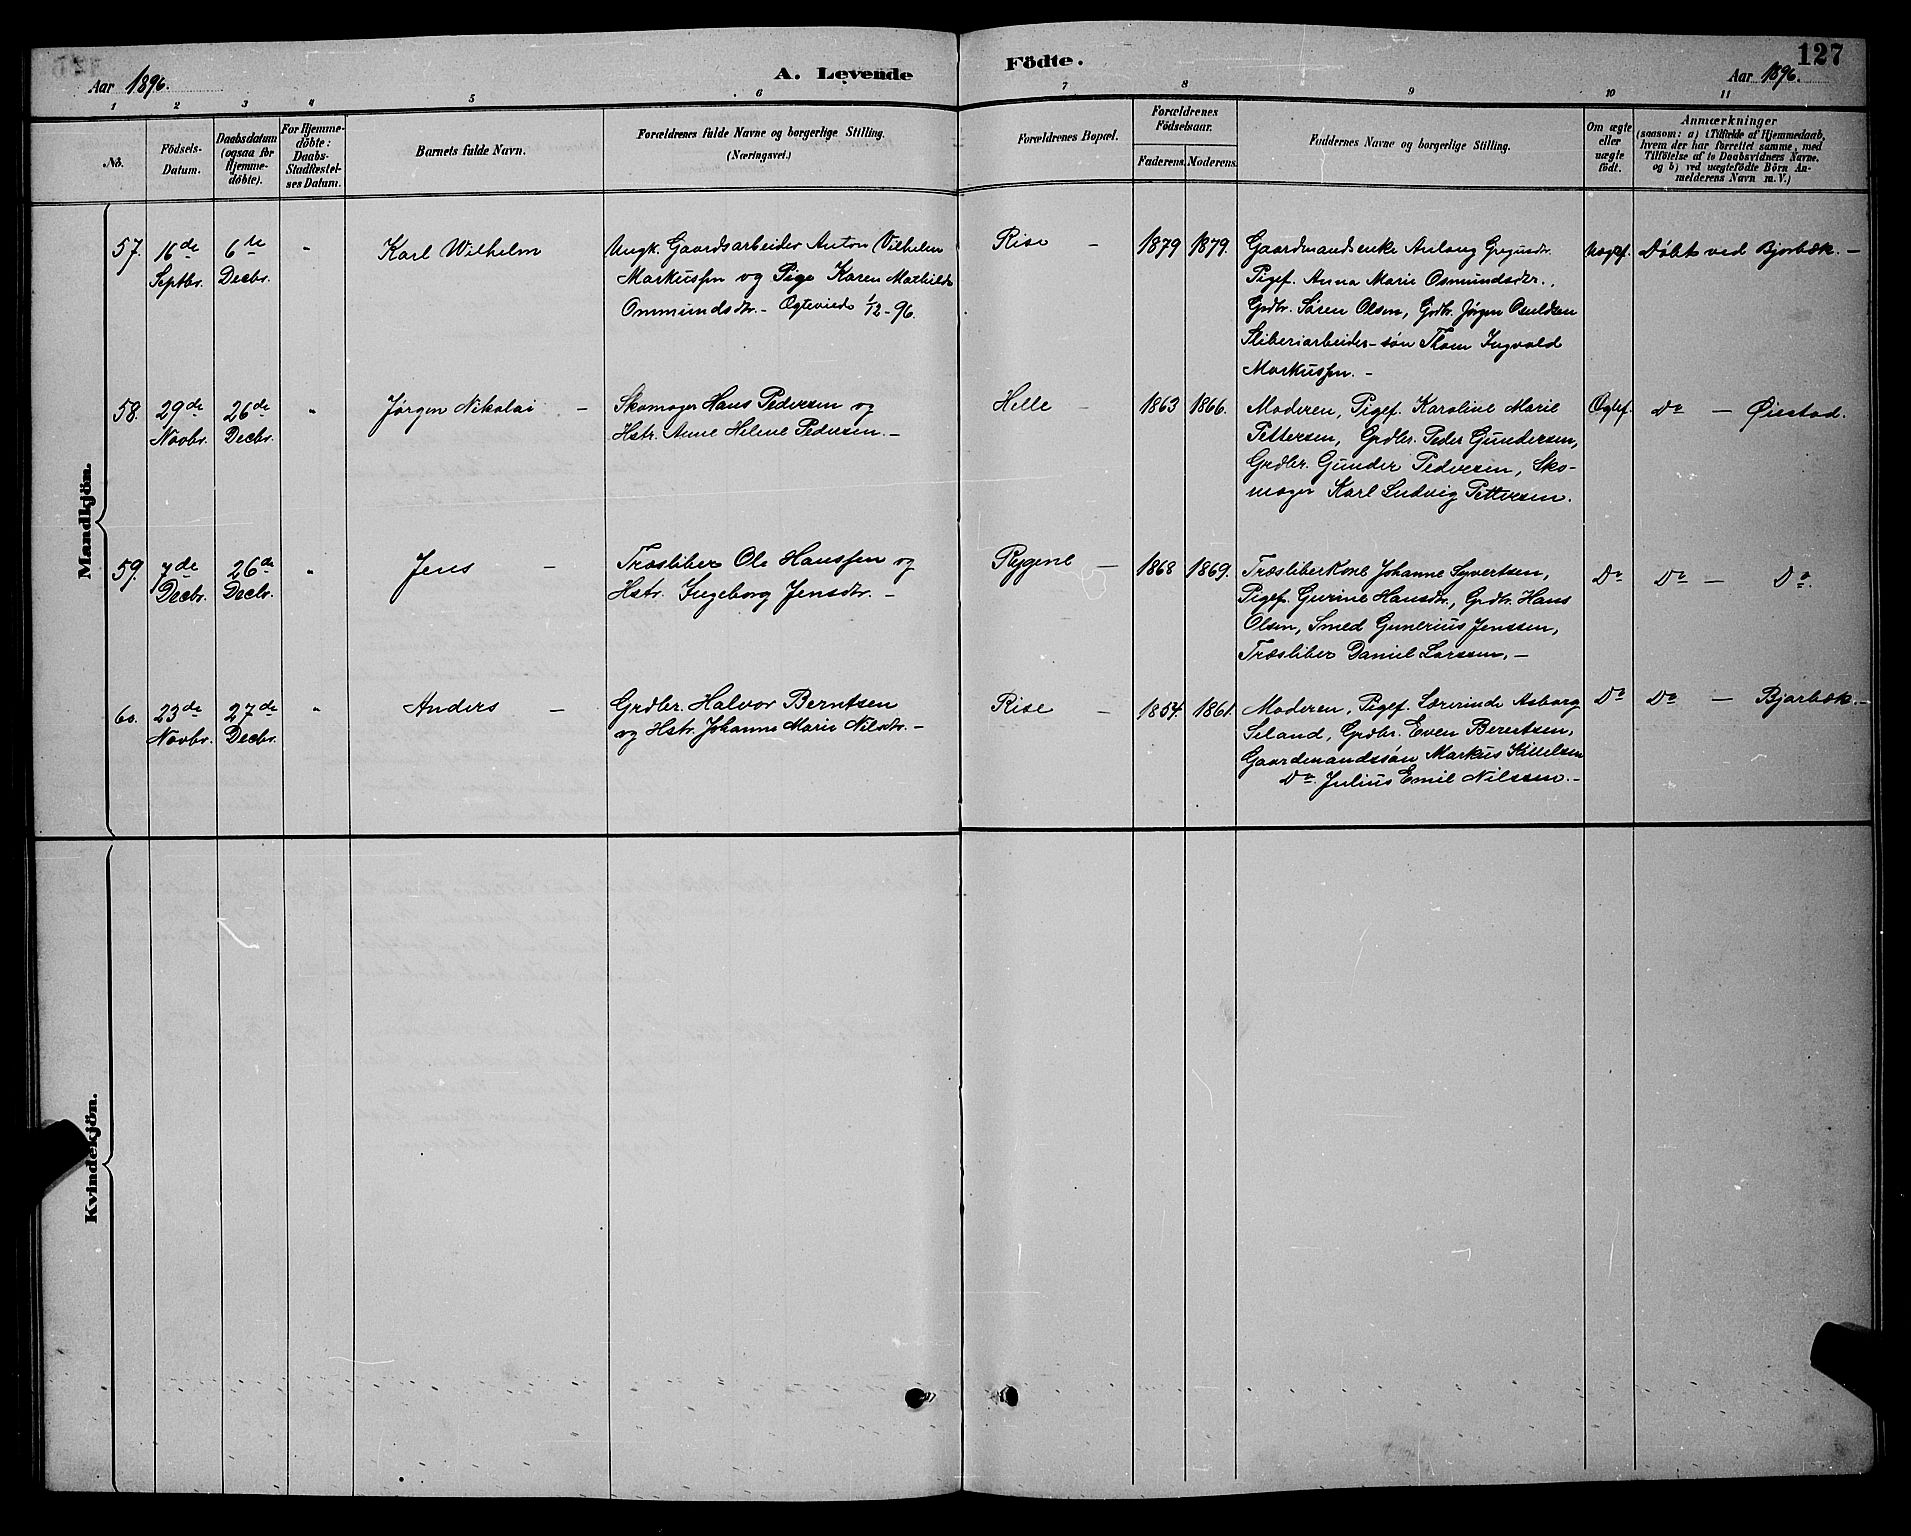 Aar 1896.
A. Levende Födte.
127
Aar 1896.
1 2 3 4 5 6 7 8 9 10 11
No.
Födsels-
Datum.
Daabsdatum
(ogsaa for
Hjemme-
döbte).
For Hjemme-
döbte:
Daabs-
Stadfæstel-
ses Datum.
Barnets fulde Navn.
Forældrenes fulde Navne og borgerlige Stilling.
(Næringsvei.)
Forældrenes Bopæl.
Forældrenes
Födselsaar.
Faderens. Moderens.
Faddernes Navne og borgerlige Stilling.
Om ægte
eller
uægte
födt.
Anmærkninger
(saasom: a) i Tilfælde af Hjemmedaab,
hvem der har forrettet samme, med
Tilföielse af to Daabsvidners Navne.
og b) ved uægtefödte Börn An-
melderens Navn m. V.)
Mandkjön.
57.
16de
Septbr.
6te
Decbr.
"
Karl Wilhelm
Ungk. Gaardsarbeider Anton Vilhelm
Markussen og Pige Karen Mathilde
Ommundsdtr. - Ægteviede 1/12-96.
Rise -
1879 1879.
Gaardmandsenke Anlaug Gregusdtr.
Pigef. Anna Marie Osmundsdtr.,
Grdbr. Søren Olsen, Grdbr. Jørgen Osuldsen
Sliberiarbeider-søn Thom Ingvald
Markussen. -
Uægtef.
Døbt ved Bjorbæk. -
58.
29de
Novbr.
26de
Decbr.
"
Jørgen Nikolai -
Skomager Hans Pedersen og
Hstr. Anne Helene Pedersen. -
Helle -
1863 1866.
Moderen, Pigef. Karoline Marie
Pettersen, Grdbr. Peder Gundersen,
Grdbr. Gunder Pedersen, Sko-
mager Karl Ludvig Pettersen.
Ægtef.
Do - Øiestad.
59.
7de
Decbr.
26de
Decbr.
"
Jens -
Træsliber Ole Hanssen og
Hstr. Ingeborg Jensdtr. -
Rygene -
1868 1869.
Træsliberkone Johanne Syvertsen,
Pigef. Gurine Hansdtr., Grdbr. Hans
Olsen, Smed Gunerius Jenssen,
Træsliber Daniel Larssen. -
Do
Do - Do.
60.
23de
Novbr.
27de
Decbr.
"
Anders -
Grdbr. Halvor Berntsen
og Hstr. Johanne Marie Nilsdtr. -
Rise -
1854. 1861.
Moderen, Pigef. Lærerinde Aasborg
Seland, Grdbr. Even Berentsen,
Gaardmandssøn Markus Kittelsen
Do. Julius Emil Nilssen. -
Do
Do - Bjorbæk. -
Kvindekjön.